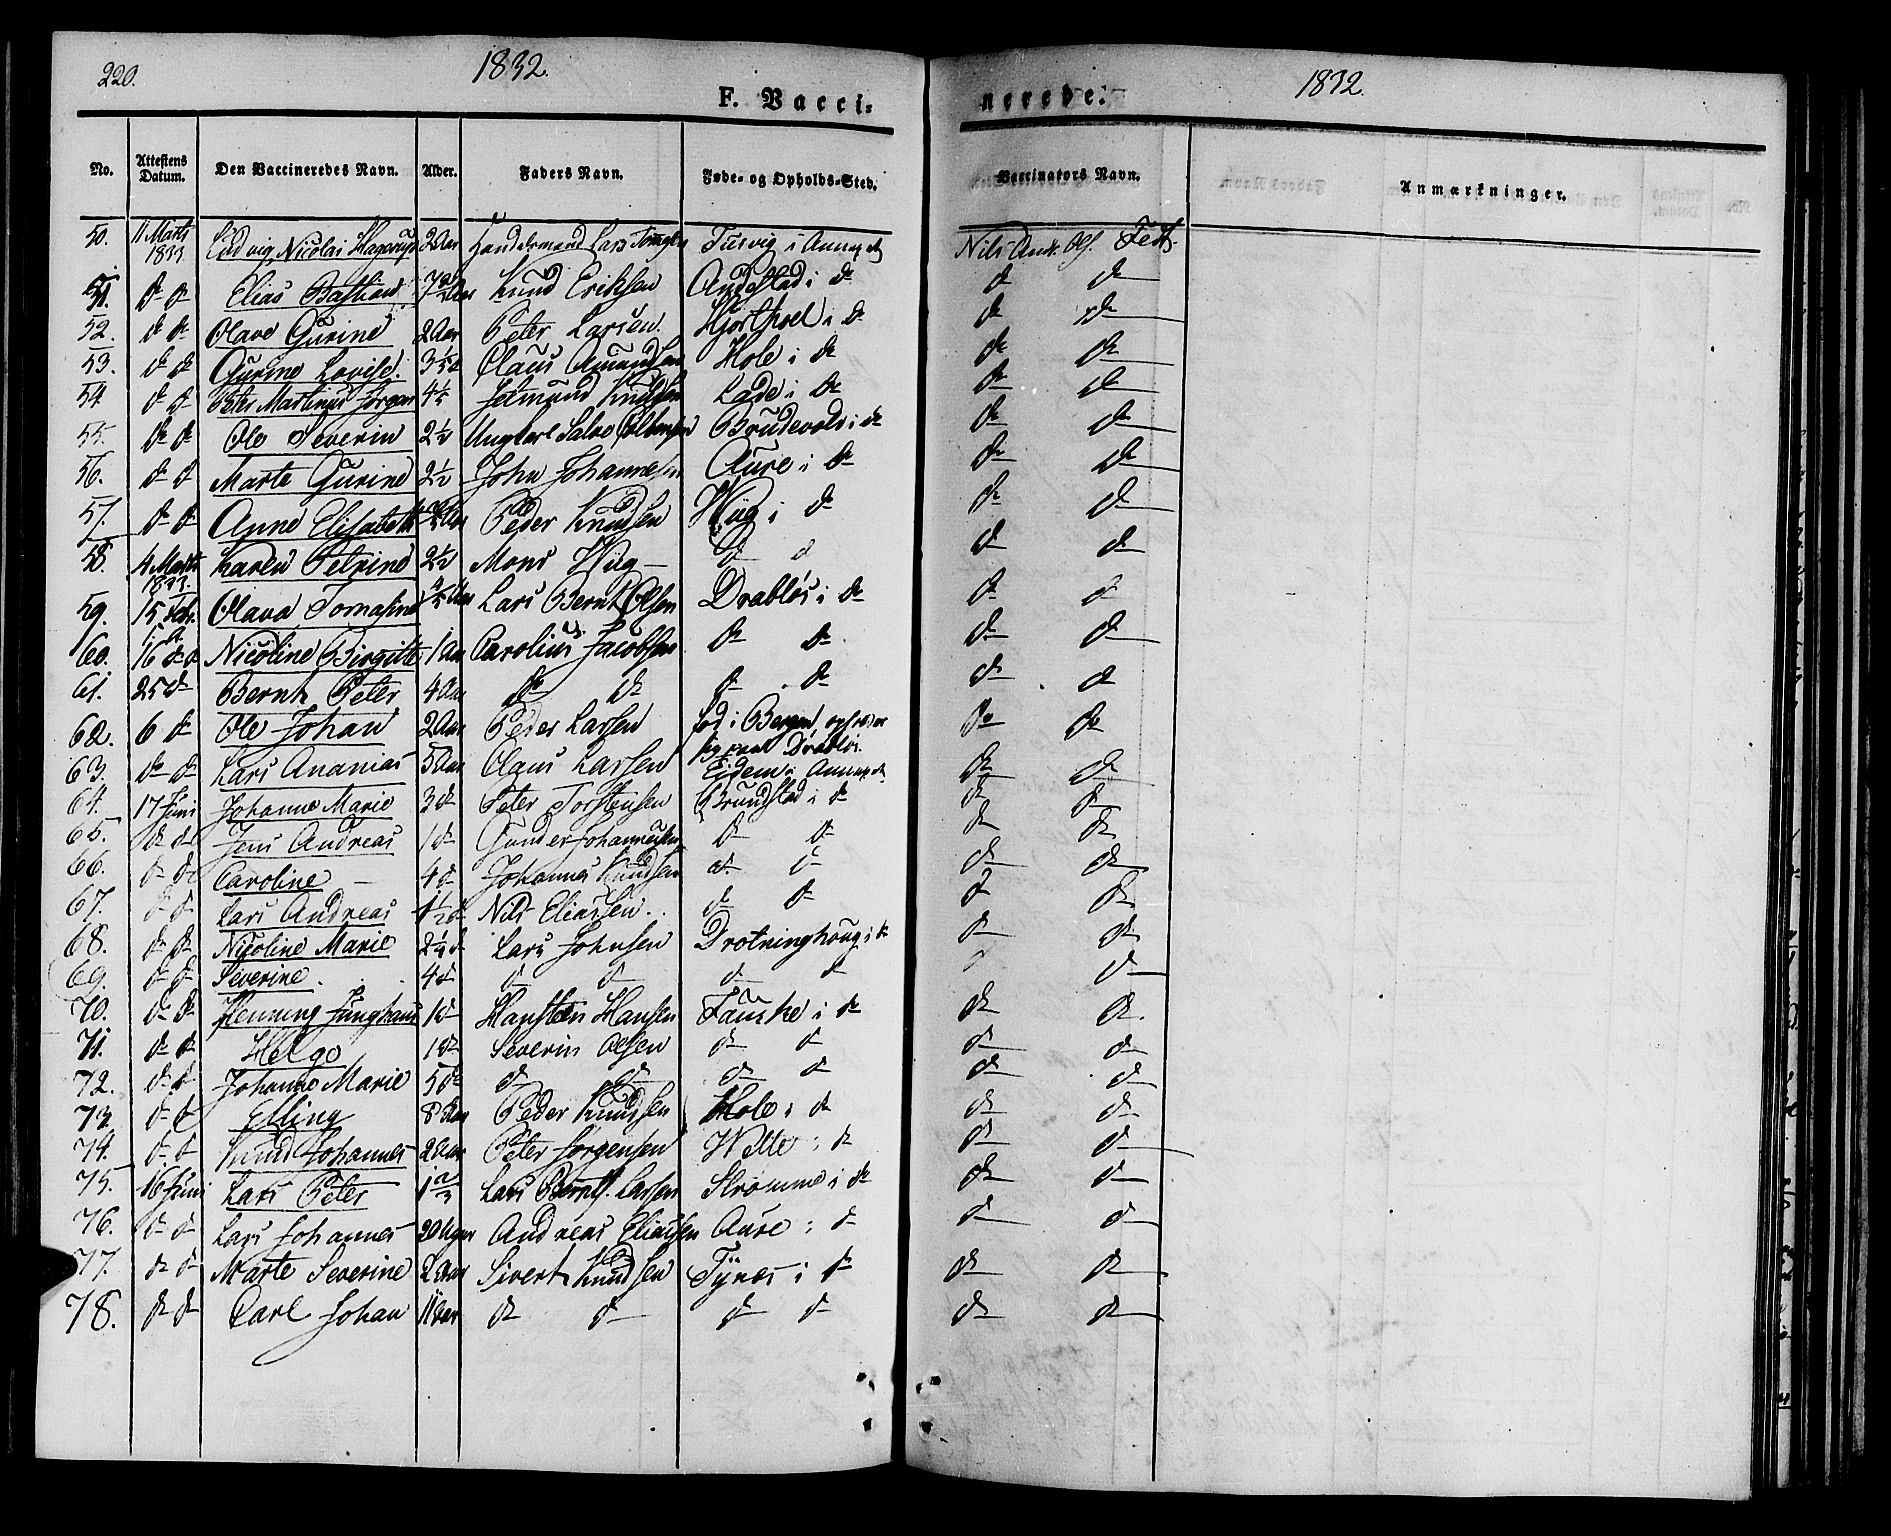 220. 1832. 1832.
F. Vacci= nerede.
No. Attestens Datum. Den Vaccineredes Navn. Alder. Faders Navn. Føde- og Opholds-Sted. Vaccinators Navn. Anmærkninger.
50. 11 Marts 1833. Ludvig Nicolai Hagerup 2 Aar Handelsmand Lars Tusvig i Annexet Nils And. Ols. Fett.
51. do do Elias Bastian 7 Aar Knud Eriksen Andestad i do do do
52. do do Olave Gurine 2 Aar Peter Larsen. Hjorthoel i do do do
53. do do Gurine Lovise. 3 1/2 Claus Amundsen Hole i do do do
54. do do Peter Martinus Jørgen 4 1/2 Knudsen Lade i do do do
55. do do Ole Severin 2 1/2 Ungkarl Salve Brudevold i do do do
56. do do Marte Gurine 2 1/2 John Johannesen Aure i do do do
57. do do Anne Elisabeth Peder Knudsen Hüg i do do do
58. 4 Marts 1833. Karen Petrine 2 1/2 Mons Hüg do do do do
59. 15 Febr. Olava Tomasine Lars Bernt Olsen Drabløs i do do do
60. 16 do Nicoline Birgitte 1 Aar Carolius Jacobsen do do do do
61. 25 do Bernt Peter 4 Aar do do do do do do
62. 6 do Ole Johan 2 Aar Peder Larsen fød i Bergen, opholder sig paa Drabløs. do do
63. do do Lars Ananias 5 Aar Claus Larsen Eidem i Annexet do do
64. 17 Juni Johanne Marie 3 do Peter Torstensen Grundstad i do do do
65. do do Jens Andreas 1 do Gunder Johannessen do do do do
66. do do Caroline 4 do Johannes Knudsen do do do do
67. do do Lars Andreas 1 1/2 do Nils Eliassen. do do do do
68. do do Nicoline Marie 2 1/4 do Lars Johnsen Drotninghoug i do do do
69. do do Severine. 4 do do do do do do do
70. do do Henning Junghans 1 do Hansten Hansen Fauske i do do do.
71. do do Helge 1 do Severin Olsen do do do do
72. do do Johanne Marie 5 do do do do do do do
73. do do Elling 8 Aar Peder Knudsen Hole i do do do
74. do do Knud Johannes 2 Aar Peter Jørgensen Welle i do do do
75. 16 Juni Lars Peter 1 Lars Bernt. Larsen Strømme i do do do
76. do do Lars Johannes 20 Uger Andreas Eliassen Aure i do do do
77. do do Marte Severine 2 Aar Sivert Knudsen Tÿnes i do do do
78. do do Carl Johan 11 Aar do do do do do do